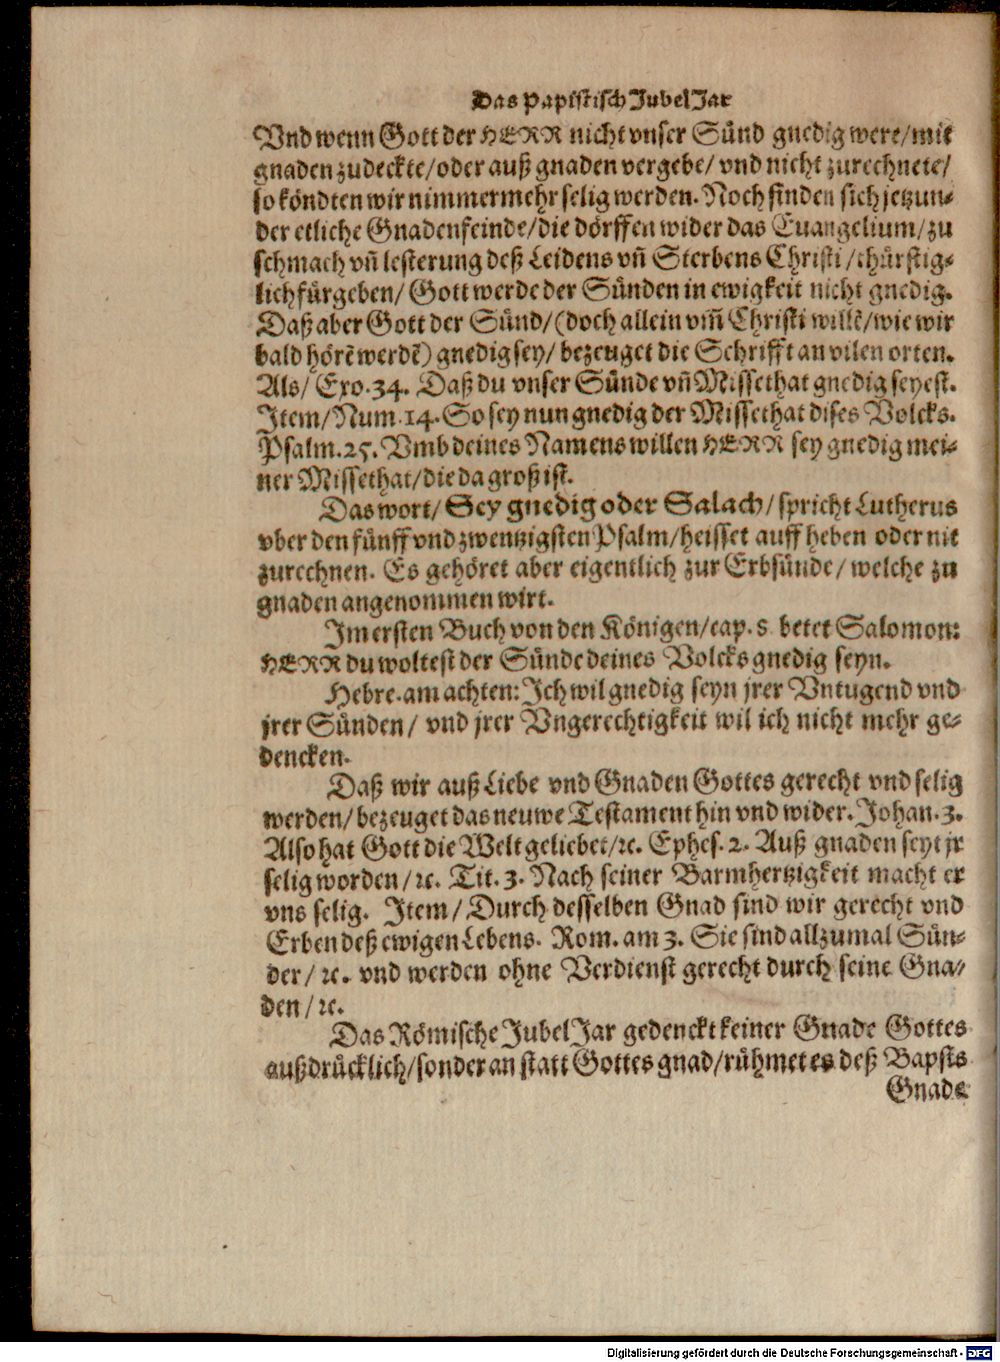 Das Papistisch JubelJar
Vnd wenn Gott der HERR nicht vnser Sünd gnedig were/mit
gnaden zudeckte/oder auß gnaden vergebe/ vnd nicht zurechnete/
so köndten wir nimmermehr selig werden. Noch finden sich jetzun-
der etliche Gnadenfeinde/die dörffen wider das Euangelium/zu
schmach vñ lesterung deß Leidens vñ Sterbens Christi/thürstig-
lich fürgeben/ Gott werde der Sünden in ewigkeit nicht gnedig.
Daß aber Gott der Sünd/(doch allein vm̃ Christi willẽ/wie wir
bald hörẽ werdẽ) gnedig sey/ bezeuget die Schrifft an vilen orten.
Als/ Exo.34. Daß du vnser Sünde vñ Missethat gnedig seyest.
Item/Num.14. So sey nun gnedig der Missethat dises Volcks.
Psalm.25. Vmb deines Namens willen HERR sey gnedig mei-
ner Missethat/die da groß ist.
Das wort/ Sey gnedig oder Salach/ spricht Lutherus
vber den fünff vnd zwentzigsten Psalm/heisset auff heben oder nit
zurechnen. Es gehöret aber eigentlich zur Erbsünde/ welche zu
gnaden angenommen wirt.
Im ersten Buch von den Königen/cap.8 betet Salomon:
HERR du woltest der Sünde deines Volcks gnedig seyn.
Hebre.am achten: Ich wil gnedig seyn jrer Vntugend vnd
jrer Sünden/ vnd jrer Vngerechtigkeit wil ich nicht mehr ge-
dencken.
Daß wir auß Liebe vnd Gnaden Gottes gerecht vnd selig
werden/ bezeuget das neuwe Testament hin vnd wider. Johan.3.
Also hat Gott die Welt geliebet/ꝛc. Ephes.2. Auß gnaden seyt jr
selig worden/ꝛc. Tit.3. Nach seiner Barmhertzigkeit macht er
vns selig. Item/Durch desselben Gnad sind wir gerecht vnd
Erben deß ewigen Lebens. Rom.am 3. Sie sind allzumal Sün-
der/ꝛc. vnd werden ohne Verdienst gerecht durch seine Gna-
den/ꝛc.
Das Römische JubelJar gedenckt keiner Gnade Gottes
außdrücklich/sonder an statt Gottes gnad/rühmet es deß Bapsts
Gnade
Digitalisierung gefördert durch die Deutsche Forschungsgemeinschaft - DFG